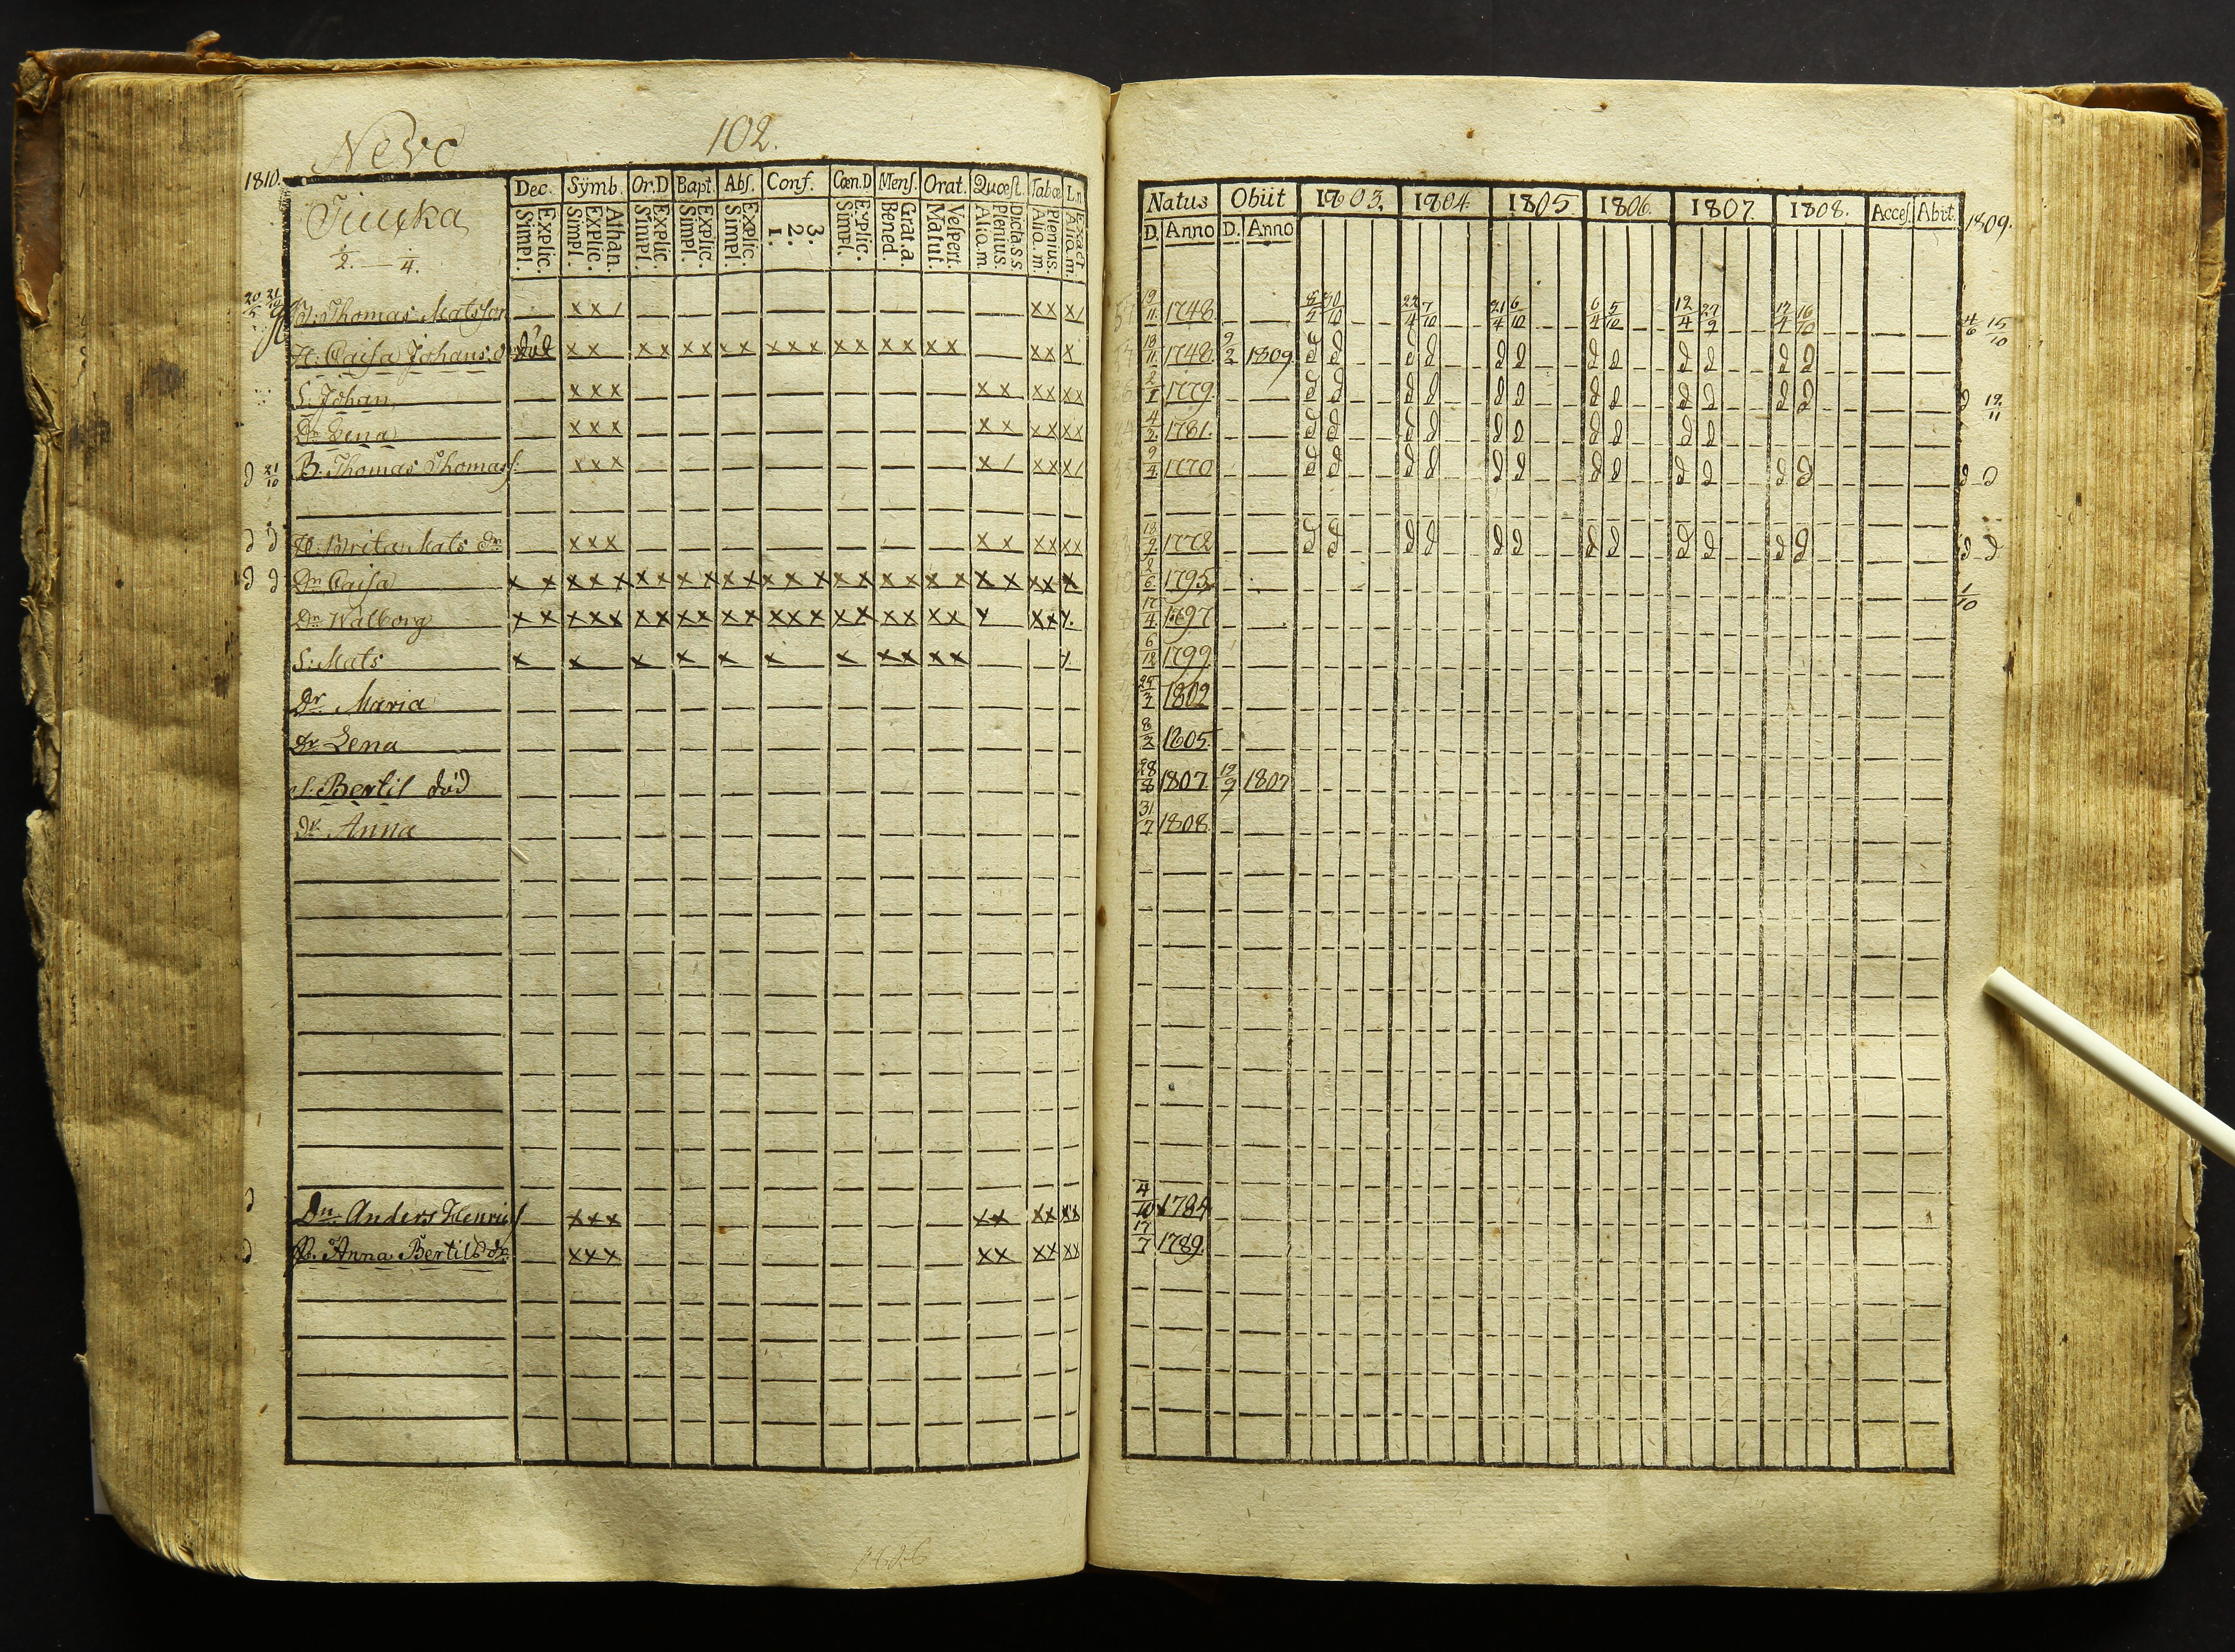 Nevo 102.
1810.
Dec. Sÿmb. Or.D Bapt. Abs. Conf. Cœn.D Mens. Orat. Quæst. Tabæ L.n
Explic. Simpl. Athan. Explic. Simpl. Explic. Simpl. Explic. Simpl. Explic. Simpl. 3. 2. 1. Explic. Simpl. Grat.a. Bened. Vespert. Matut. Dicta.s.s Plenius. Aliq.m. Plenius. Aliq.m. Exact. Aliq.m.
1/2. — 1/4.
Thomas Matsson x x / x x x /
H: Caisa Johans d död x x x x x x x x x x x x x x x x x x x x x
S: Johan x x x x x x x x x
Dr Lena x x x x x x x x x
B. Thomas Thomass. x x x x / x x x /
H: Brita Mats dr x x x x x x x x x
Dr Caisa x x x x x x x x x x x x x x x x x x x x x x x x x x
Dr Walborg x x x x x x x x x x x x x x x x x x x x x x x x
S: Mats x x x x x x x x x x x
Dr Maria
Dr Lena
S: Bertil död
dr Anna
Dn Anders Henrics x x x x x x x x x
P. Anna Bertils dr x x x x x x x x x
Natus Obiit 1803. 1804 1805 1806. 1807. 1808. Acces. Abit. 1809.
D. Anno D. Anno
19/11 1748 22/4 7/10 21/4 6/10 6/4 5/10 12/4 27/9 17/4 16/10 4/6 15/10
18/11 1748 9/2 1809
1779. 19/11
4/2 1781.
9/4 1770
18/9 1772
2/6 1795 1/10
17/4 1797
6/12 1799
25/3 1802
8/2 1805.
28/8 1807 19/9 1807
31/7 1808
4/10 1784
17/7 1789.